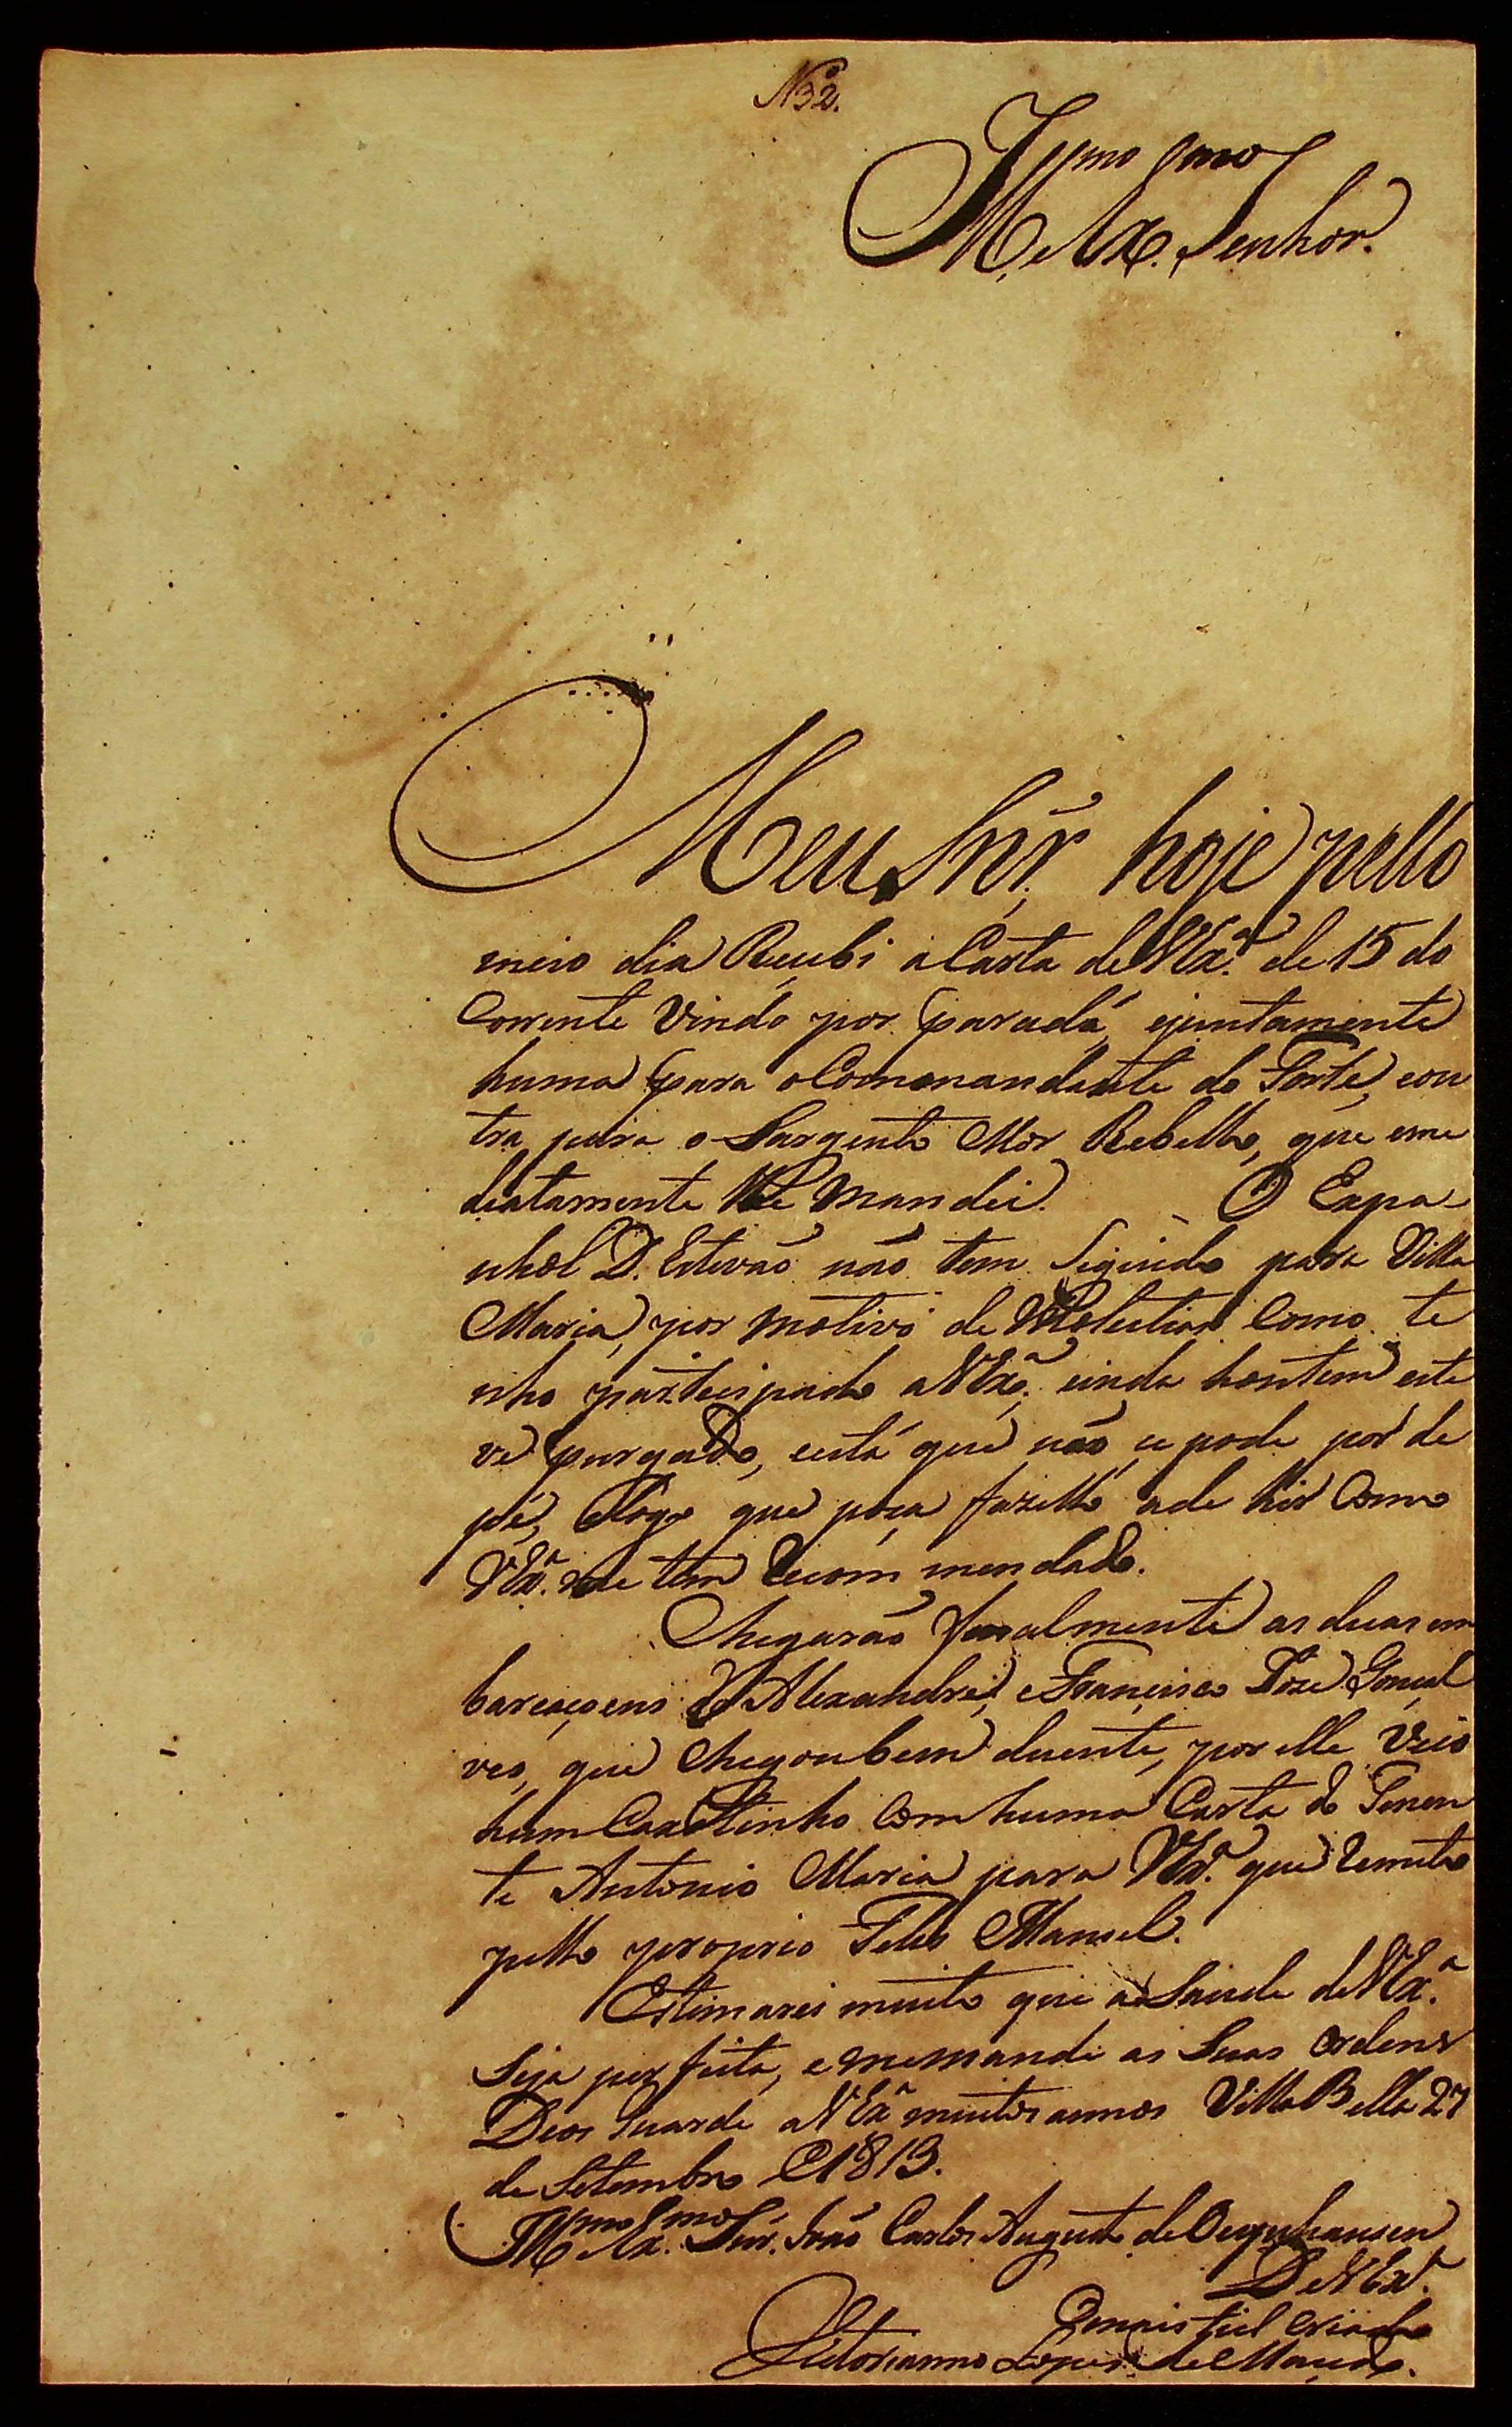 N.º 2.
Ill.mo e Ex.mo Senhor.
Meu Snr. hoje pello
meio dia Recebi a Carta de VEx.ª de 15 do
Corrente Vindo por parada, ejuntamente
huma para o Comenandante do Forte, eou
tra para o Sargento Mor Rebello, que eme
deatamente lhe Mandei. O Espa-
nhol D. Estevão não tem Seguido para Villa
Maria, por motivo de Molestias Como te
nho partecipado a VEx.ª, einda hontem este
ve purgado, eestá que não se pode por de
pé, eLogo que poça fazello ade hir Como
VEx.ª me tem Recommendado.
Chegarão finalmente as duas em
barcaçoens do Alexandre, e Francisco Jozé Gonçal
ves, que Chegou bem duente, por elle Veio
hum Caxotinho Com huma Carta do Tenen
te Antonio Maria para VEx.ª que Remeto
pello proprio Felis Manoel.
Estimarei muito que a Saude de VEx.ª
Seja perfeita, e memande as Suas Ordens
Deos Guarde a VEx.ª muitos annos Villa Bella 27
de Setembro e 1813.
Ill.mo e Ex.mo Snr. João Carlos Augusto de Oeynhausen
De VEx.ª
Omais fiel Criado
Victorianno Lopes de Macedo.